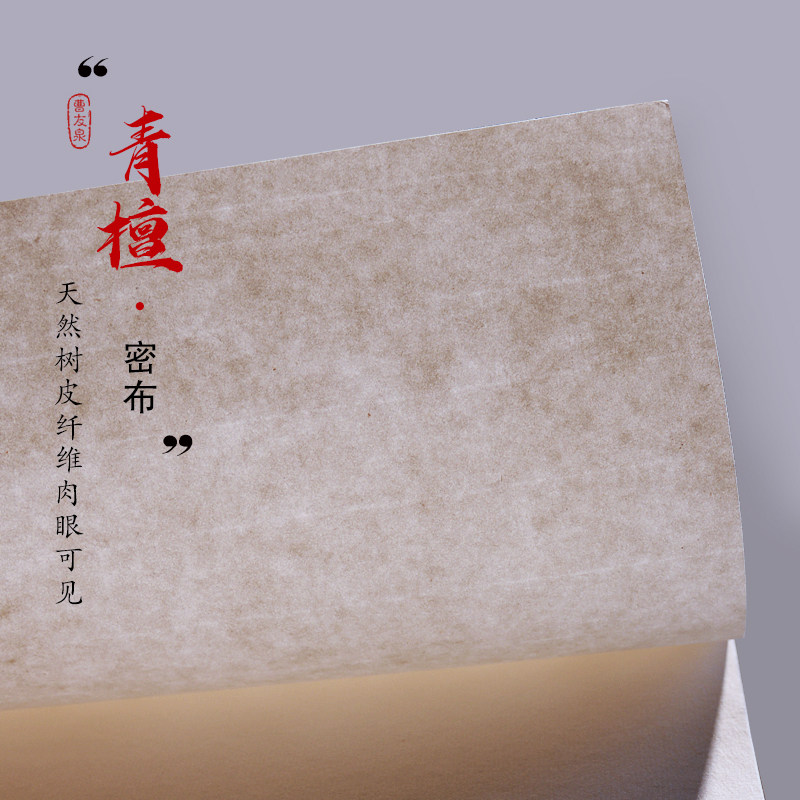 “
曹友泉
青檀·密布
”
天然树皮纤维肉眼可见